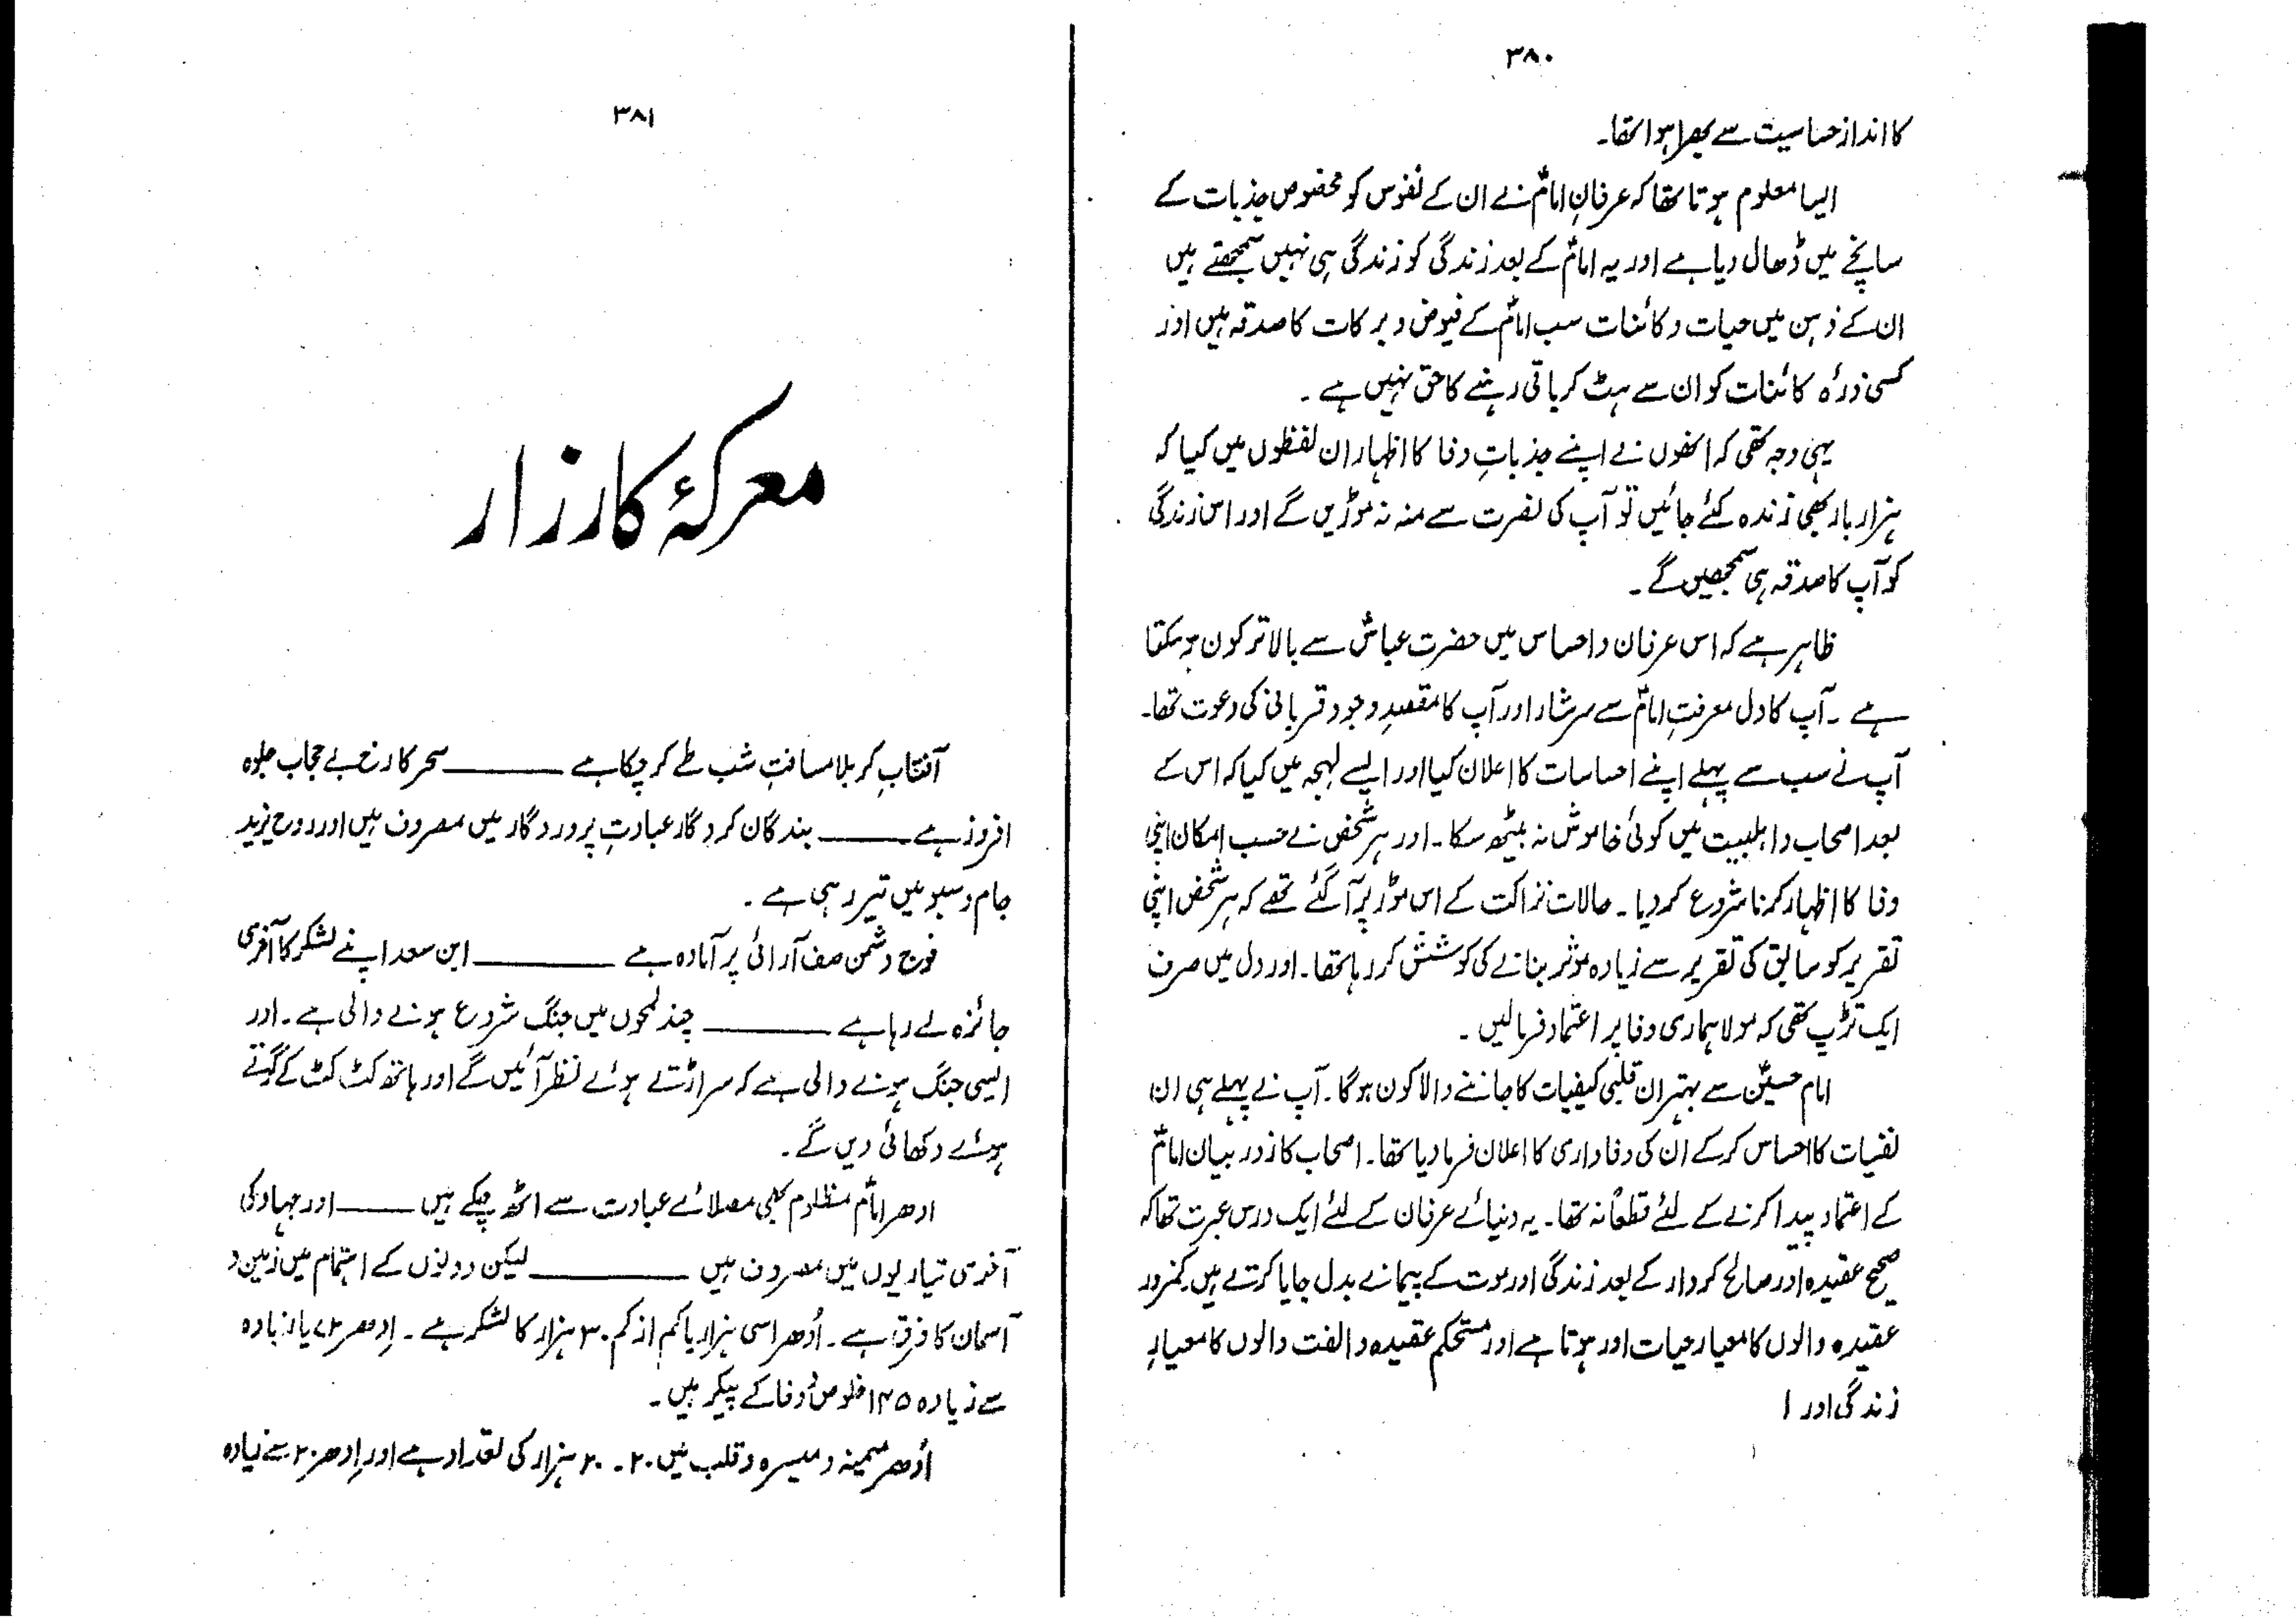 ۳۸۰
کا انداز حساسیت سے بھرا ہوا تھا۔
ایسا معلوم ہوتا تھا کہ عرفانِ امامؑ نے ان کے نفوس کو مخصوص جذبات کے
سانچے میں ڈھال دیا ہے اور یہ امامؑ کے بعد زندگی کو زندگی ہی نہیں سمجھتے ہیں
ان کے ذہن میں حیات و کائنات سب امامؑ کے فیوض و برکات کا صدقہ ہیں اور
کسی ذرۂ کائنات کو ان سے ہٹ کر باقی رہنے کا حق نہیں ہے ۔
یہی وجہ تھی کہ انھوں نے اپنے جذباتِ وفا کا اظہار ان لفظوں میں کیا کہ
ہزار بار بھی زندہ کئے جائیں تو آپ کی نصرت سے منہ نہ موڑیں گے اور اس زندگی
کو آپ کا صدقہ ہی سمجھیں گے ۔
ظاہر ہے کہ اس عرفان و احساس میں حضرت عباسؑ سے بالاتر کون ہو سکتا
ہے ۔ آپ کا دل معرفتِ امامؑ سے سرشار اور آپ کا مقصدِ وجود قربانی کی دعوت تھا۔
آپ نے سب سے پہلے اپنے احساسات کا اعلان کیا اور ایسے لہجہ میں کیا کہ اس کے
بعد اصحاب و اہلبیت میں کوئی خاموش نہ بیٹھ سکا ۔ اور ہر شخص نے حسب امکان اپنی
وفا کا اظہار کرنا شروع کر دیا ۔ حالات نزاکت کے اس موڑ پر آ گئے تھے کہ ہر شخص اپنی
تقریر کو سابق کی تقریر سے زیادہ موثر بنانے کی کوشش کر رہا تھا ۔ اور دل میں صرف
ایک تڑپ تھی کہ مولا ہماری وفا پر اعتماد فرمالیں ۔
امام حسینؑ سے بہتر ان قلبی کیفیات کا جاننے والا کون ہوگا ۔ آپ نے پہلے ہی ان
نفسیات کا احساس کر کے ان کی وفاداری کا اعلان فرما دیا تھا ۔ اصحاب کا زور بیان امامؑ
کے اعتماد پیدا کرنے کے لئے قطعاً نہ تھا ۔ یہ دنیائے عرفان کے لئے ایک درس عبرت تھا کہ
صحیح عقیدہ اور صالح کردار کے بعد زندگی اور موت کے پیمانے بدل جایا کرتے ہیں کمزور
عقیدہ والوں کا معیار حیات اور ہوتا ہے اور مستحکم عقیدہ و الفت والوں کا معیارِ
زندگی اور !
۳۸۱
معرکۂ کارزار
آفتابِ کربلا مسافتِ شب طے کر چکا ہے ــــــــ سحر کا رخ بے حجاب جلوہ
افروز ہے ــــــــ بندگان کردگار عبادتِ پروردگار میں مصروف ہیں اور روح یزید
جام و سبو میں تیر رہی ہے ۔
فوج دشمن صف آرائی پر آمادہ ہے ــــــــ ابن سعد اپنے لشکر کا آخری
جائزہ لے رہا ہے ــــــــ چند لمحوں میں جنگ شروع ہونے والی ہے ۔ اور
ایسی جنگ ہونے والی ہے کہ سر اڑتے ہوئے نظر آئیں گے اور ہاتھ کٹ کٹ کے گرتے
ہوئے دکھائی دیں گے ۔
ادھر امامؑ مظلوم بھی مصلائے عبادت سے اٹھ چکے ہیں ــــــــ اور جہاد کی
آخری تیاریوں میں مصروف ہیں ــــــــ لیکن دونوں کے اہتمام میں زمین و
آسمان کا فرق ہے ۔ اُدھر اسی ہزار یا کم از کم ۳۰ ہزار کا لشکر ہے ۔ اِدھر ۷۲ یا زیادہ
سے زیادہ ۱۴۵ خلوص و وفا کے پیکر ہیں ۔
اُدھر میمنہ و میسرہ و قلب میں ۲۰ ۔ ۲۰ ہزار کی تعداد ہے اور اِدھر ۲۰ سے زیادہ